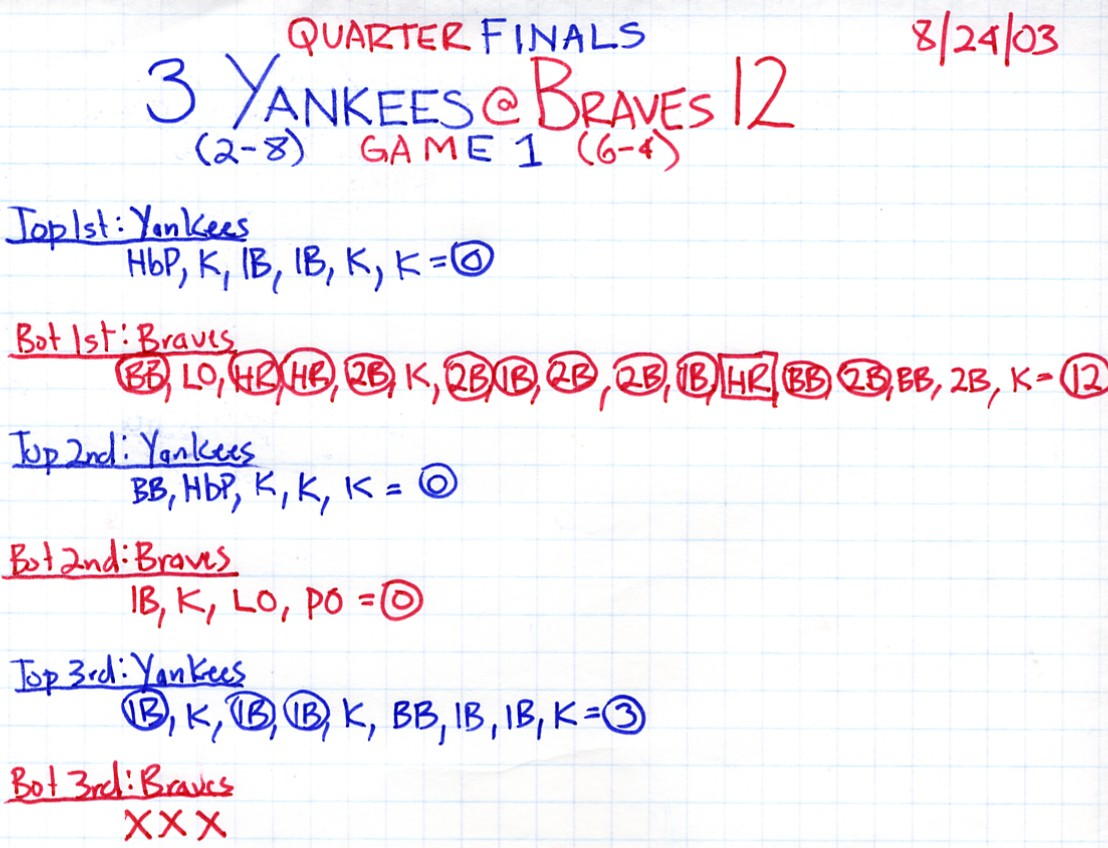 QUARTER FINALS 8/24/03
3 YANKEES @ BRAVES 12
(2-8) GAME 1 (6-4)
Top 1st: Yankees
HbP, K, 1B, 1B, K, K = 0
Bot 1st: Braves
BB, LO, HR, HR, 2B, K, 2B, 1B, 2B, 2B, 1B, HR, BB, 2B, BB, 2B, K = 12
Top 2nd: Yankees
BB, HbP, K, K, K = 0
Bot 2nd: Braves
1B, K, LO, PO = 0
Top 3rd: Yankees
1B, K, 1B, 1B, K, BB, 1B, 1B, K = 3
Bot 3rd: Braves
X X X